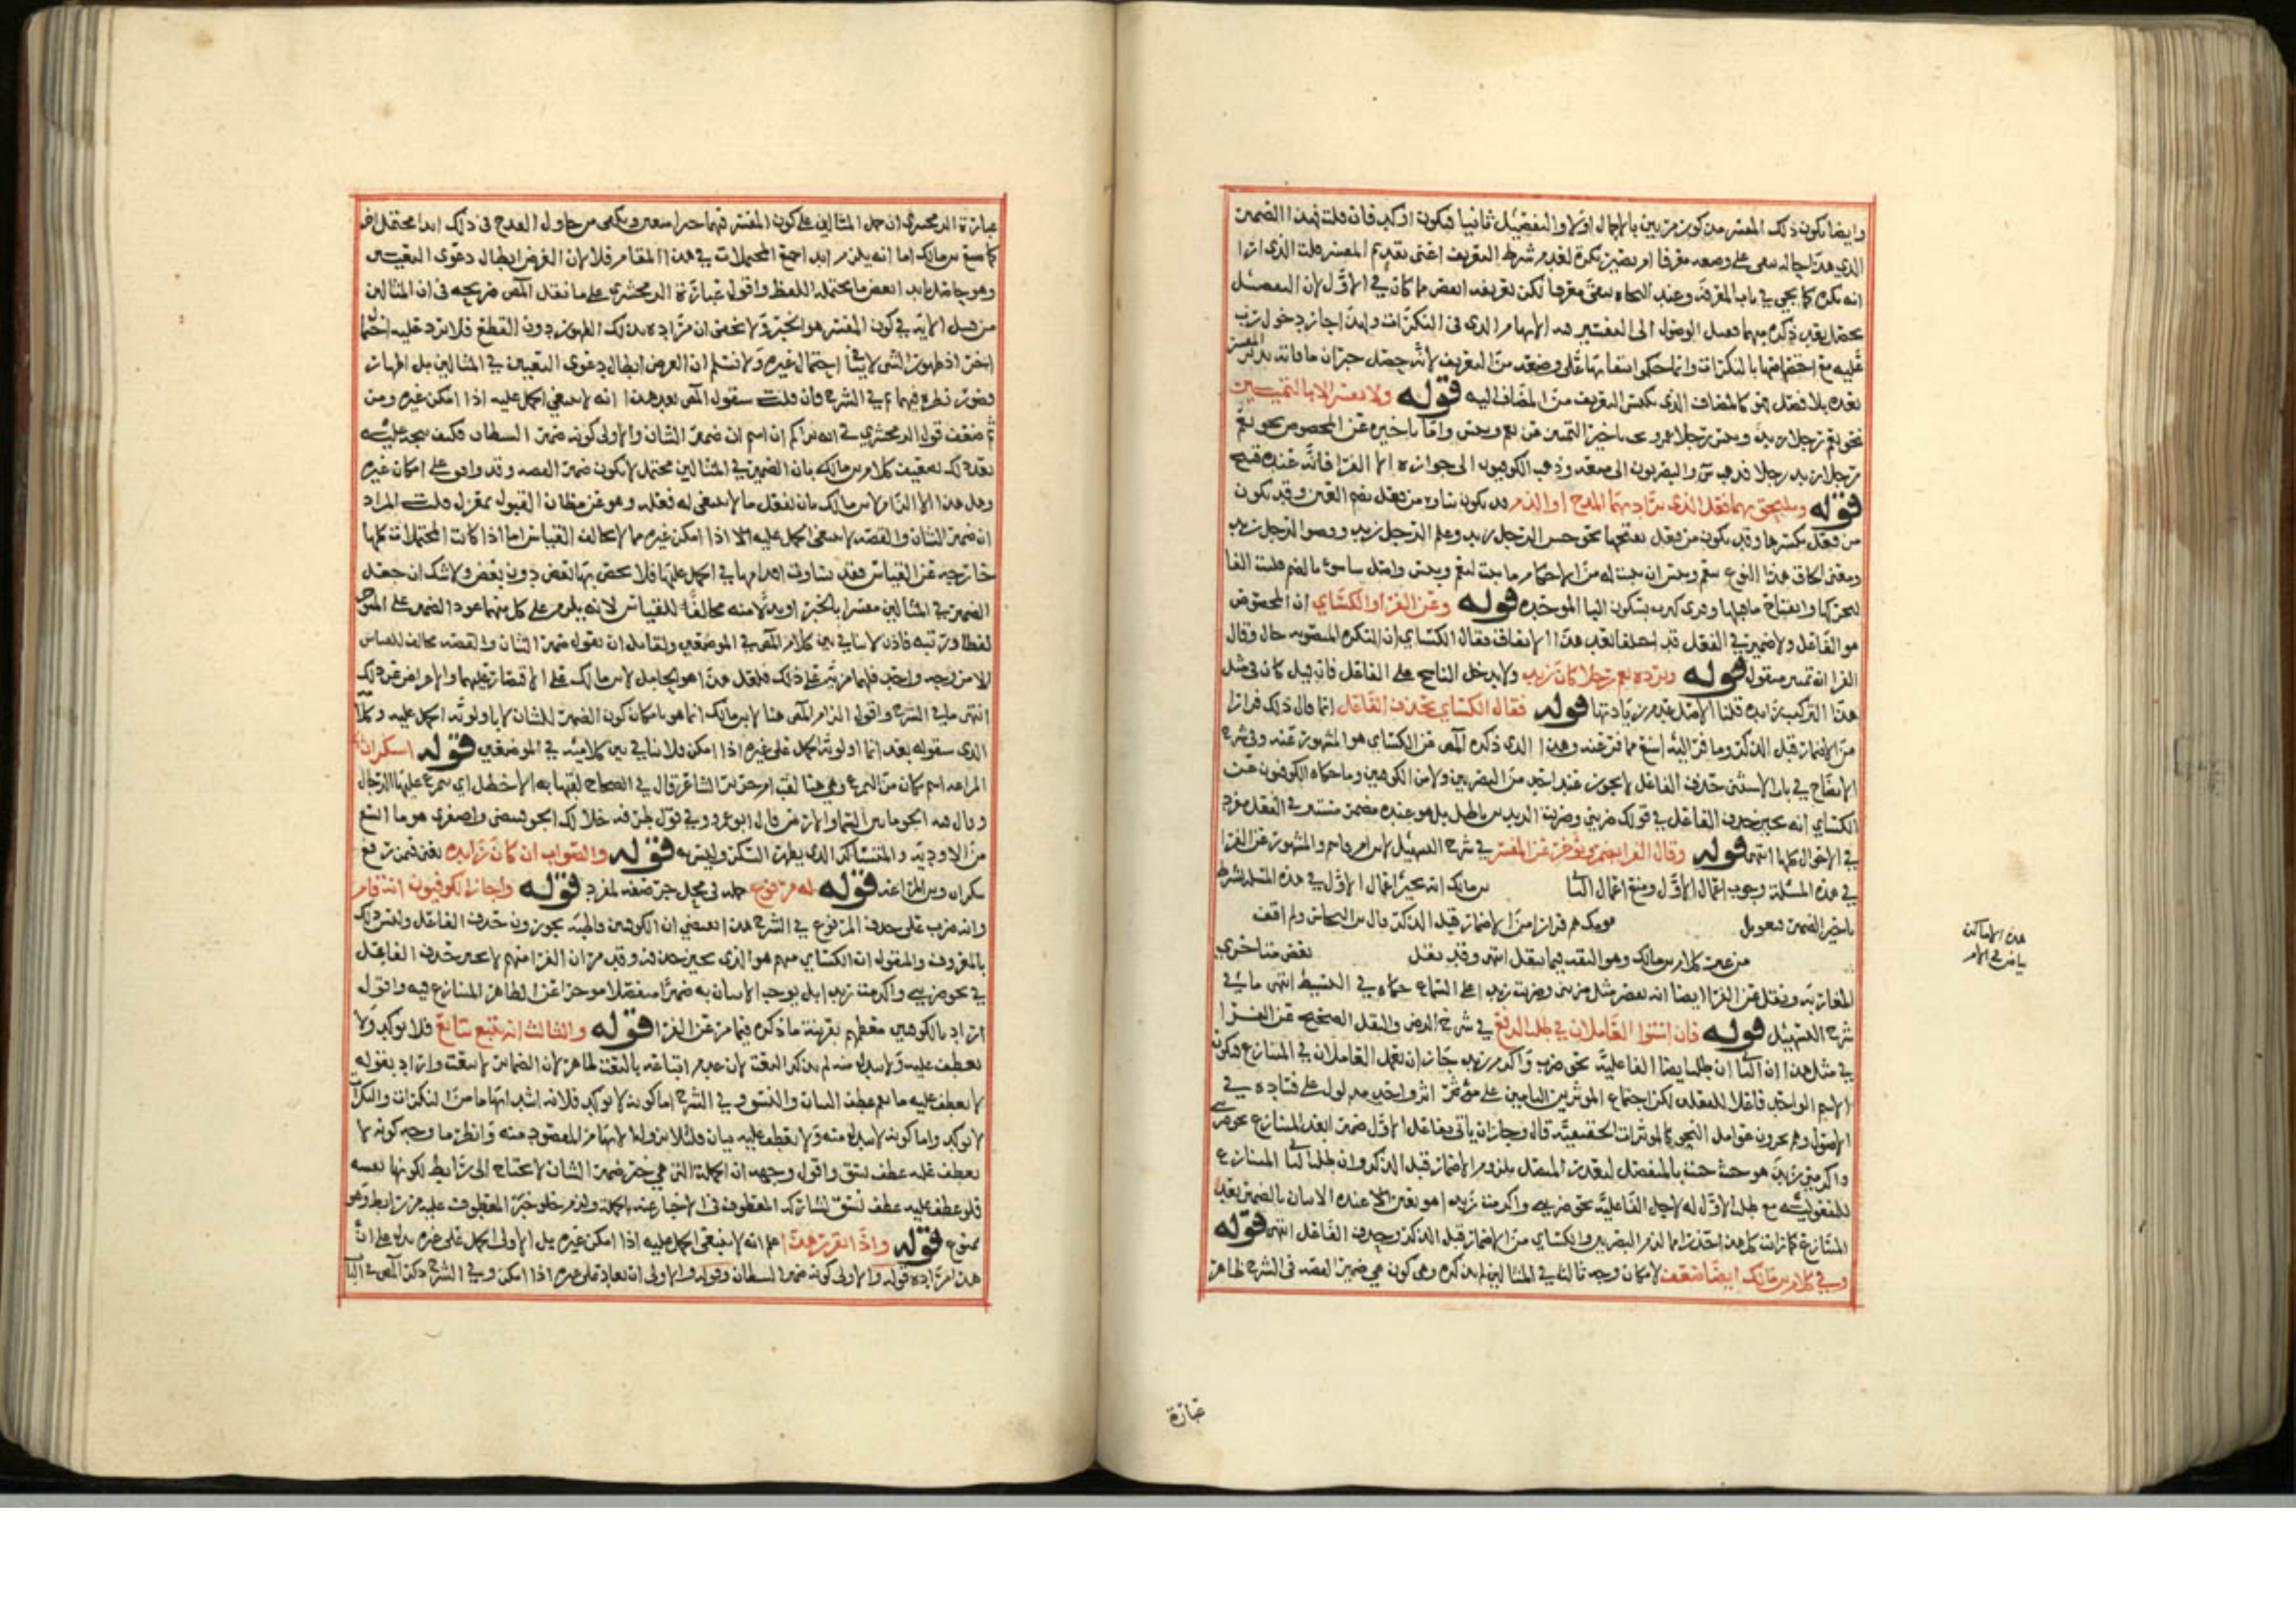 وايضا يكون ذلك المفسر مذكور مرتين بالاجمال اولا والتفصيل ثانيا فيكون اوكد فان قلت فهذا الضمير
الذي هذا حاله يبقى على وضعه معرفا ام يصير نكرة لعدم شرط التعريف اعنى تقديم المفسر قلت الذي ارا
انه نكرة كما يجي في باب المعرفة وعند النحاة يبقى معرفا لكن تعريفه انقص مما كان في الاول لان التفصيل
يحصل بعد ذكره مبهما فقبل الوصول الى التفسير فيه الابهام الذي في النكرات ولهذا جاز دخول رب
عليه مع اختصاصها بالنكرات وانما حكموا ببقائها على وضعه من التعريف لانه حصل جبران ما فاته بذكر المفسر
بعده بلا فصل فهو كالمضاف الذي يكتسى التعريف من المضاف اليه قوله ولا يفسر الا بالتمييز
نحو نعم رجلا زيد وبئس رجلا عمرو تاخير التمييز عن نعم وبئس واما تاخيره عن المخصوص نحو نعم
رجلا زيد رجلا فذهب س والبصريون الى منعه وذهب الكوفيون الى جوازه الا الفرا فانه عنده قبيح
قوله ويلتحق بهما فعل الذي يراد بهما المدح او الذم قد يكون بناوه من فعل بضم العين وقد يكون
من فعل بكسرها وقد يكون من فعل بفتحها نحو حسن الرجل زيد وعلم الرجل زيد وقضوا الرجل زيد
ومعنى الحاق هذا النوع بنعم وبئس ان يثبت له من الاحكام ما يثبت لنعم وبئس واصل ساسوء بالضم قلبت الفا
لتحركها وانفتاح ما قبلها بسكون اليا الموحدة قوله وعن الفرا والكسائي ان المخصوص
هو الفاعل ولا ضمير في الفعل قد اختلفا بعد هذا الاتفاق فقال الكسائي ان النكرة المنصوبة حال وقال
الفرا انه تمييز منقول قوله ويرده نعم رجلا كان زيد ولا يدخل الناسخ على الفاعل فان قيل كان في مثل
هذا التركيب زائدة قلنا الاصل عدم زيادتها قوله فقال الكسائي بحذف الفاعل انما قال ذلك فرارا
من الاضمار قبل الذكر وما فر اليه اشنع مما فر عنه وهذا الذي ذكره المص عن الكسائي هو المشهور عنه وفي شرح
الايضاح في باب الاستثنى حذف الفاعل لا يجوز عند احد من البصريين ولا من الكوفيين وما حكاه الكوفيون عن
الكسائي انه يجيز حذف الفاعل في قولك ضربني وضربت الزيدين باطل بل هو عنده مضمر مستتر في الفعل مفرد
في الاحوال كلها انتهى قوله وقال الفرا يضمر ويؤخر عن المفسر في شرح التسهيل لابن ام قاسم والمشهور عن الفرا
في هذه المسئلة وجوب اعمال الاول ومنع اعمال الثا بن مالك انه يجيز اعمال الاول في هذه المسئلة بشرط
تاخير الضمير فرارا من الاضمار قبل الذكر قال بن النحاس ولم اقف
من غير كلام بن مالك وهو الثقة فيما ينقل انتهى وقد نقل بعض متاخري
المغاربة ونقل عن الفرا ايضا انه يقصر مثل ضربني وضربت زيدا على السماع حكاه في البسيط انتهى ما في
شرح التسهيل قوله فان استوا العاملان في طلب الرفع في شرح الرضى والنقل الصحيح عن الفرا
في مثل هذا ان الثا ان طلب ايضا الفاعلية نحو ضرب واكرم زيد جاز ان يعمل العاملان في المتنازع فيكون
الاسم الواحد فاعلا للفعلين لكن اجتماع الموثرين التامين على موثر اثر واحد مدلول على فساده في
الاصول وهم يجرون عوامل النحو كالموثرات الحقيقية قال وجاز ان يأتي بفاعل الاول ضميرا بعد المتنازع نحو ضربني
واكرمني زيد هو جئت بالمنفصل لتعذر المتصل بلزوم الاضمار قبل الذكر وان طلب الثا المتنازع
للمفعولية مع طلب الاول له لاجل الفاعلية نحو ضربني واكرمت زيدا هو تعين عنده الاتيان بالضمير بعد
المتنازع كما رايت كل هذا حذرا مما لزم البصريين والكسائي من الاضمار قبل الذكر وحذف الفاعل انتهى قوله
وفي كلام بن مالك ايضا ضعف لامكان وجه ثالث في المثالين لم يذكره وهي كون هي ضمير القصة في الشرح ظاهر
هذه الاماكن
بياض في الام
عبارة
عبارة الزمخشري ان حمل المثالين على كون المفسر فيهما خبرا متعين ويكفى من حاول القدح في ذلك ابدا محتمل اخر
كما صنع بن مالك اما انه يلزم ابدا جميع المحتملات في هذا المقام فلا لان الغرض ابطال دعوى التعيين
وهو حاصل بابدا بعض ما يحتمله اللفظ واقول عبارة الزمخشري على ما نقل المص صريحه في ان المثالين
من قبيل الاية في كون المفسر هو الخبر ولا يخفى ان مراده بذلك الظهور دون القطع فلا يرد عليه احتمال
اخر اذ ظهور الشي لا ينافي احتمال غيره ولا نسلم ان الغرض ابطال دعوى التعيين في المثالين بل اظهار
قصور نظره فيهما في الشرح فان قلت سيقول المص بعد هذا انه لا ينبغى الحمل عليه اذا امكن غيره ومن
ثم ضعف قول الزمخشري في انه يراكم ان اسم ان ضمير الشان والاولى كونه ضمير الشيطان فكيف يتجه عليه
بعد ذلك تضعيف كلام بن مالك بان الضمير في المثالين محتمل لان يكون ضمير القصة وقد وافق على امكان غيره
وهل هذا الا الزام لابن مالك بان يفعل ما لا ينبغى له فعله وهو عن مظان القبول بمعزل قلت المراد
ان ضمير الشان والقصة لا ينبغى الحمل عليه الا اذا امكن غيره مما لا يخالف القياس اما اذا كانت المحتملات كلها
خارجة عن القياس فقد تساوت اقدامها في الحمل عليها فلا يختص بها بعض دون بعض ولا شك ان جعل
الضمير في المثالين مفسرا بالخبر او بدلا منه مخالفا للقياس لانه يلزم على كل منهما عود الضمير على المتاخر
لفظا ورتبة فاذن لا تنافي بين كلام المص في الموضعين ولقائل ان يقول ضمير الشان والقصة مخالف للقياس
لا من وجه واحد فلهما مزية على ذلك فلعل هذا هو الحامل لابن مالك على الاقتصار عليهما والاعراض عن ذلك
انتهى ما في الشرح واقول الزام المص هنا لابن مالك انما هو بامكان كون الضمير للشان لا باولوية الحمل عليه وكلامه
الذي سيقوله بعد انما اولوية الحمل على غيره اذا امكن فلا تنافي بين كلاميه في الموضعين قوله اسكران
المراغة اسم مكان من التمرغ وهي هنا لقب ام جرير الشاعر قال في الصحاح لقبها به الاخطل اي يتمرغ عليها الرجال
وقال فيه الجو ما بين السما والارض قال ابو عمرو في قول طرفة خلا لك الجو فبيضى واصفرى هو ما اتسع
من الاودية والمتساكر الذي يظهر السكر وليس به قوله والصواب ان كان زايدة يعنى فيمن رفع
سكران وبن المراغة قوله له مرفوع جملة في محل جر صفة لمفرد قوله واجاز الكوفيون انه قام
وانه ضرب على حذف المرفوع في الشرح هذا يقتضي ان الكوفيين قاطبة يجوزون حذف الفاعل وليس ذلك
بالمعروف والمنقول ان الكسائي منهم هو الذي يجيز حذفه وقد مر ان الفرا منهم لا يجيز حذف الفاعل
في نحو ضربني واكرمت زيدا بل يوجب الاتيان به ضميرا منفصلا موخرا عن الظاهر المتنازع فيه واقول
اراد بالكوفيين معظمهم بقرينة ما ذكره فيما مر عن الفرا قوله والثالث انه يتبع بتابع فلا يوكد ولا
يعطف عليه ولا يبدل منه لم يذكر النعت لان عدم اتباعه بالنعت ظاهر لان الضمائر لا تنعت واراد بقوله
لا يعطف عليه ما يعم عطف البيان والنسق وفي الشرح اما كونه لا يوكد فلانه اشد ابهاما من النكرات والنكرات
لا توكد واما كونه لا يبدل منه ولا يعطف عليه بيان فلئلا يزول الابهام المقصود منه وانظر ما وجه كونه لا
يعطف عليه عطف نسق واقول وجهه ان الجملة التي هي خبر ضمير الشان لا تحتاج الى رابط لكونها نفسه
فلو عطف عليه عطف نسق لشاركه المعطوف في الاخبار عنه بالجملة ولزم خلو خبر المعطوف عليه من رابط وهو
ممنوع قوله واذا تقرر هذا علم انه لا ينبغي الحمل عليه اذا امكن غيره بل الاولى الحمل على غيره يدل على ان
هذا مراده قوله والاولى كونه ضمير الشيطان وقوله والاولى ان يعاد على غيره اذا امكن وفي الشرح ذكر المص في البا